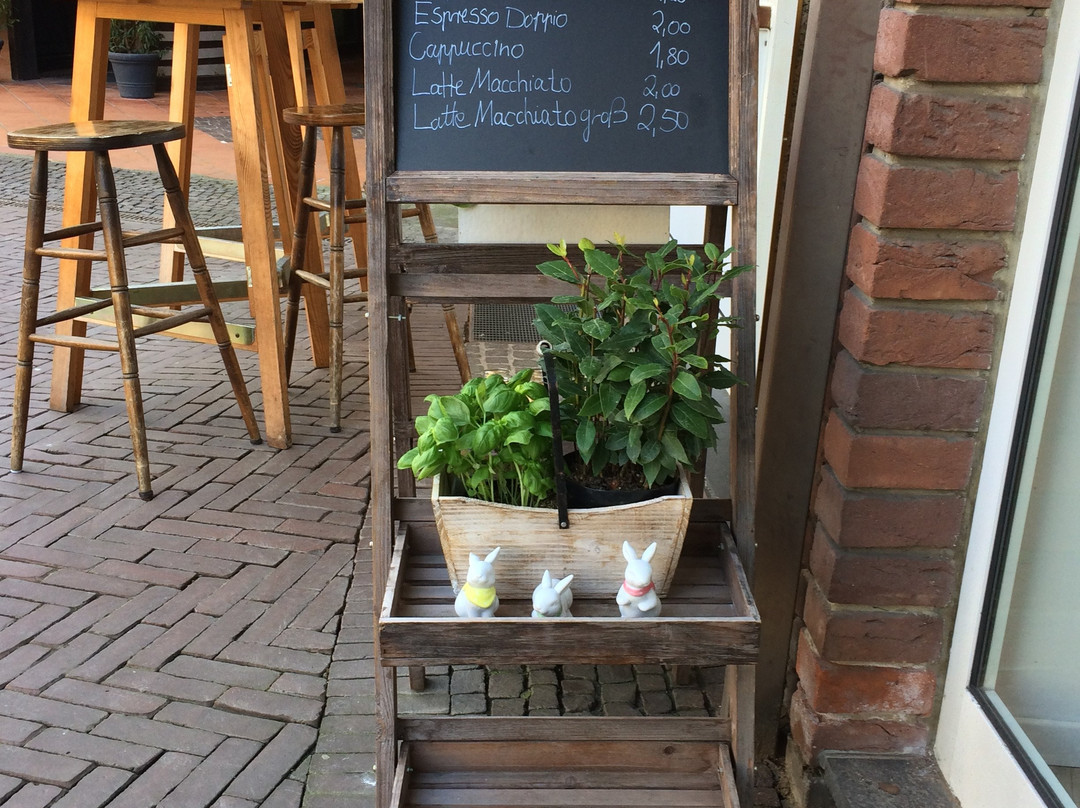 Espresso Doppio 2,00
Cappuccino 1,80
Latte Macchiato 2,00
Latte Macchiato groß 2,50